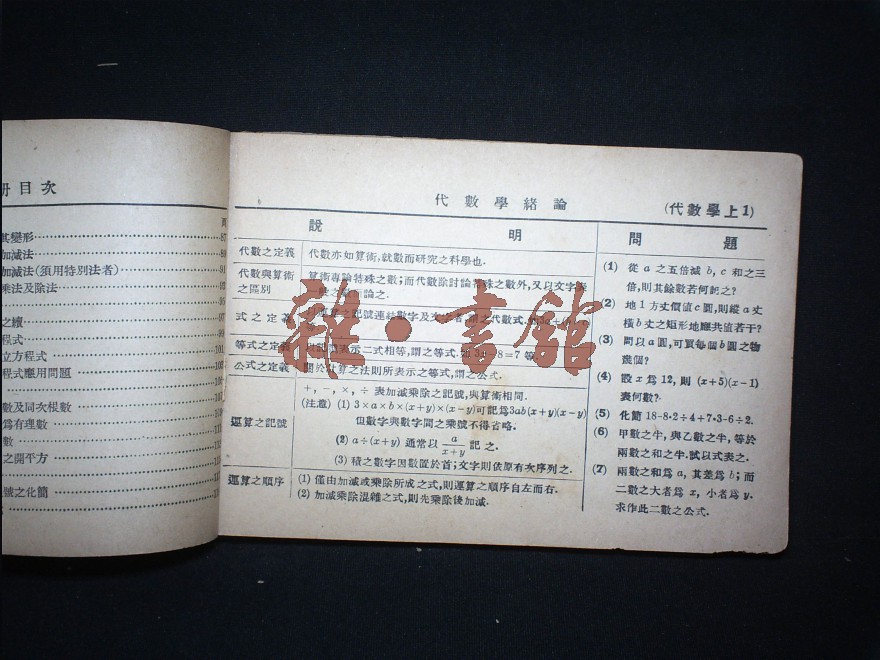 冊目次
頁
其變形 87
加減法
加減法(須用特別法者) 91
乘法及除法
之續
程式
立方程式
程式應用問題
數及同次根數
爲有理數
數
之開平方
號之化簡
代數學緒論
(代數學上1)
說明
代數之定義 代數亦如算術,就數而研究之科學也.
代數與算術之區別 算術專論特殊之數;而代數除討論特殊之數外,又以文字
論之.
式之定義 之記號連結數字及文字 之代數式.
等式之定義 表示二式相等,謂之等式. 8=7等
公式之定義 關於計算之法則所表示之等式,謂之公式.
運算之記號 +, −, ×, ÷ 表加減乘除之記號,與算術相同.
(注意) (1) 3×a×b×(x+y)×(x−y)可記爲3ab(x+y)(x−y)
但數字與數字間之乘號不得省略.
(2) a÷(x+y) 通常以 a/(x+y) 記之.
(3) 積之數字因數置於首;文字則依原有次序列之.
運算之順序 (1) 僅由加減或乘除所成之式,則運算之順序自左而右.
(2) 加減乘除混雜之式,則先乘除後加減.
問題
(1) 從 a 之五倍減 b, c 和之三
倍,則其餘數若何記之?
(2) 地1方丈價值c圓,則縱a丈
橫b丈之矩形地應共值若干?
(3) 問以a圓,可買每個b圓之物
幾個?
(4) 設 x 爲 12, 則 (x+5)(x−1)
表何數?
(5) 化簡 18−8·2÷4+7·3−6÷2.
(6) 甲數之半,與乙數之半,等於
兩數之和之半.試以式表之.
(7) 兩數之和爲 a, 其差爲 b; 而
二數之大者爲 x, 小者爲 y.
求作此二數之公式.
雜·書館